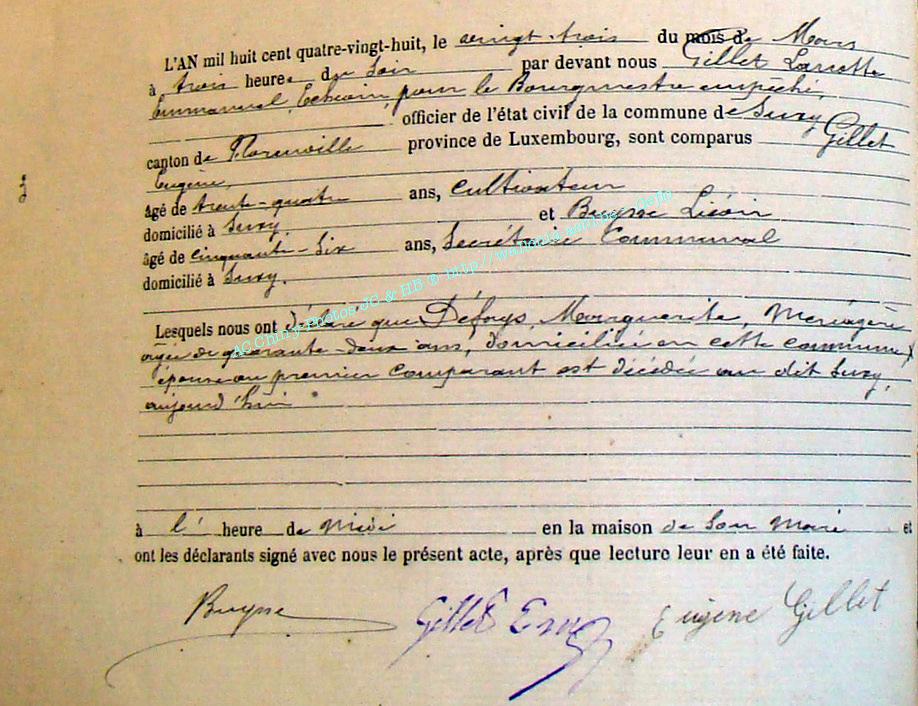 L'AN mil huit cent quatre-vingt-huit, le vingt-trois du mois de Mars
à trois heures du soir par devant nous Gillet Lansotte
Emmanuel, Echevin, pour le Bourgmestre empêché,
officier de l'état civil de la commune de Suxy
canton de Florenville province de Luxembourg, sont comparus Gillet
Eugène,
âgé de trente-quatre ans, cultivateur
domicilié à Suxy. et Buysse Liévin
âgé de cinquante-six ans, Secrétaire Communal
domicilié à Suxy.
Lesquels nous ont déclaré que Défoys, Marguerite, Ménagère
agée de quarante-deux ans, domiciliée en cette commune
épouse au premier comparant est décédée au dit Suxy,
aujourd'hui
à l' heure de midi en la maison de son mari et
ont les déclarants signé avec nous le présent acte, après que lecture leur en a été faite.
Buysse Gillet Em Eugène Gillet
AC Chiny-Photos JC & HB © http://